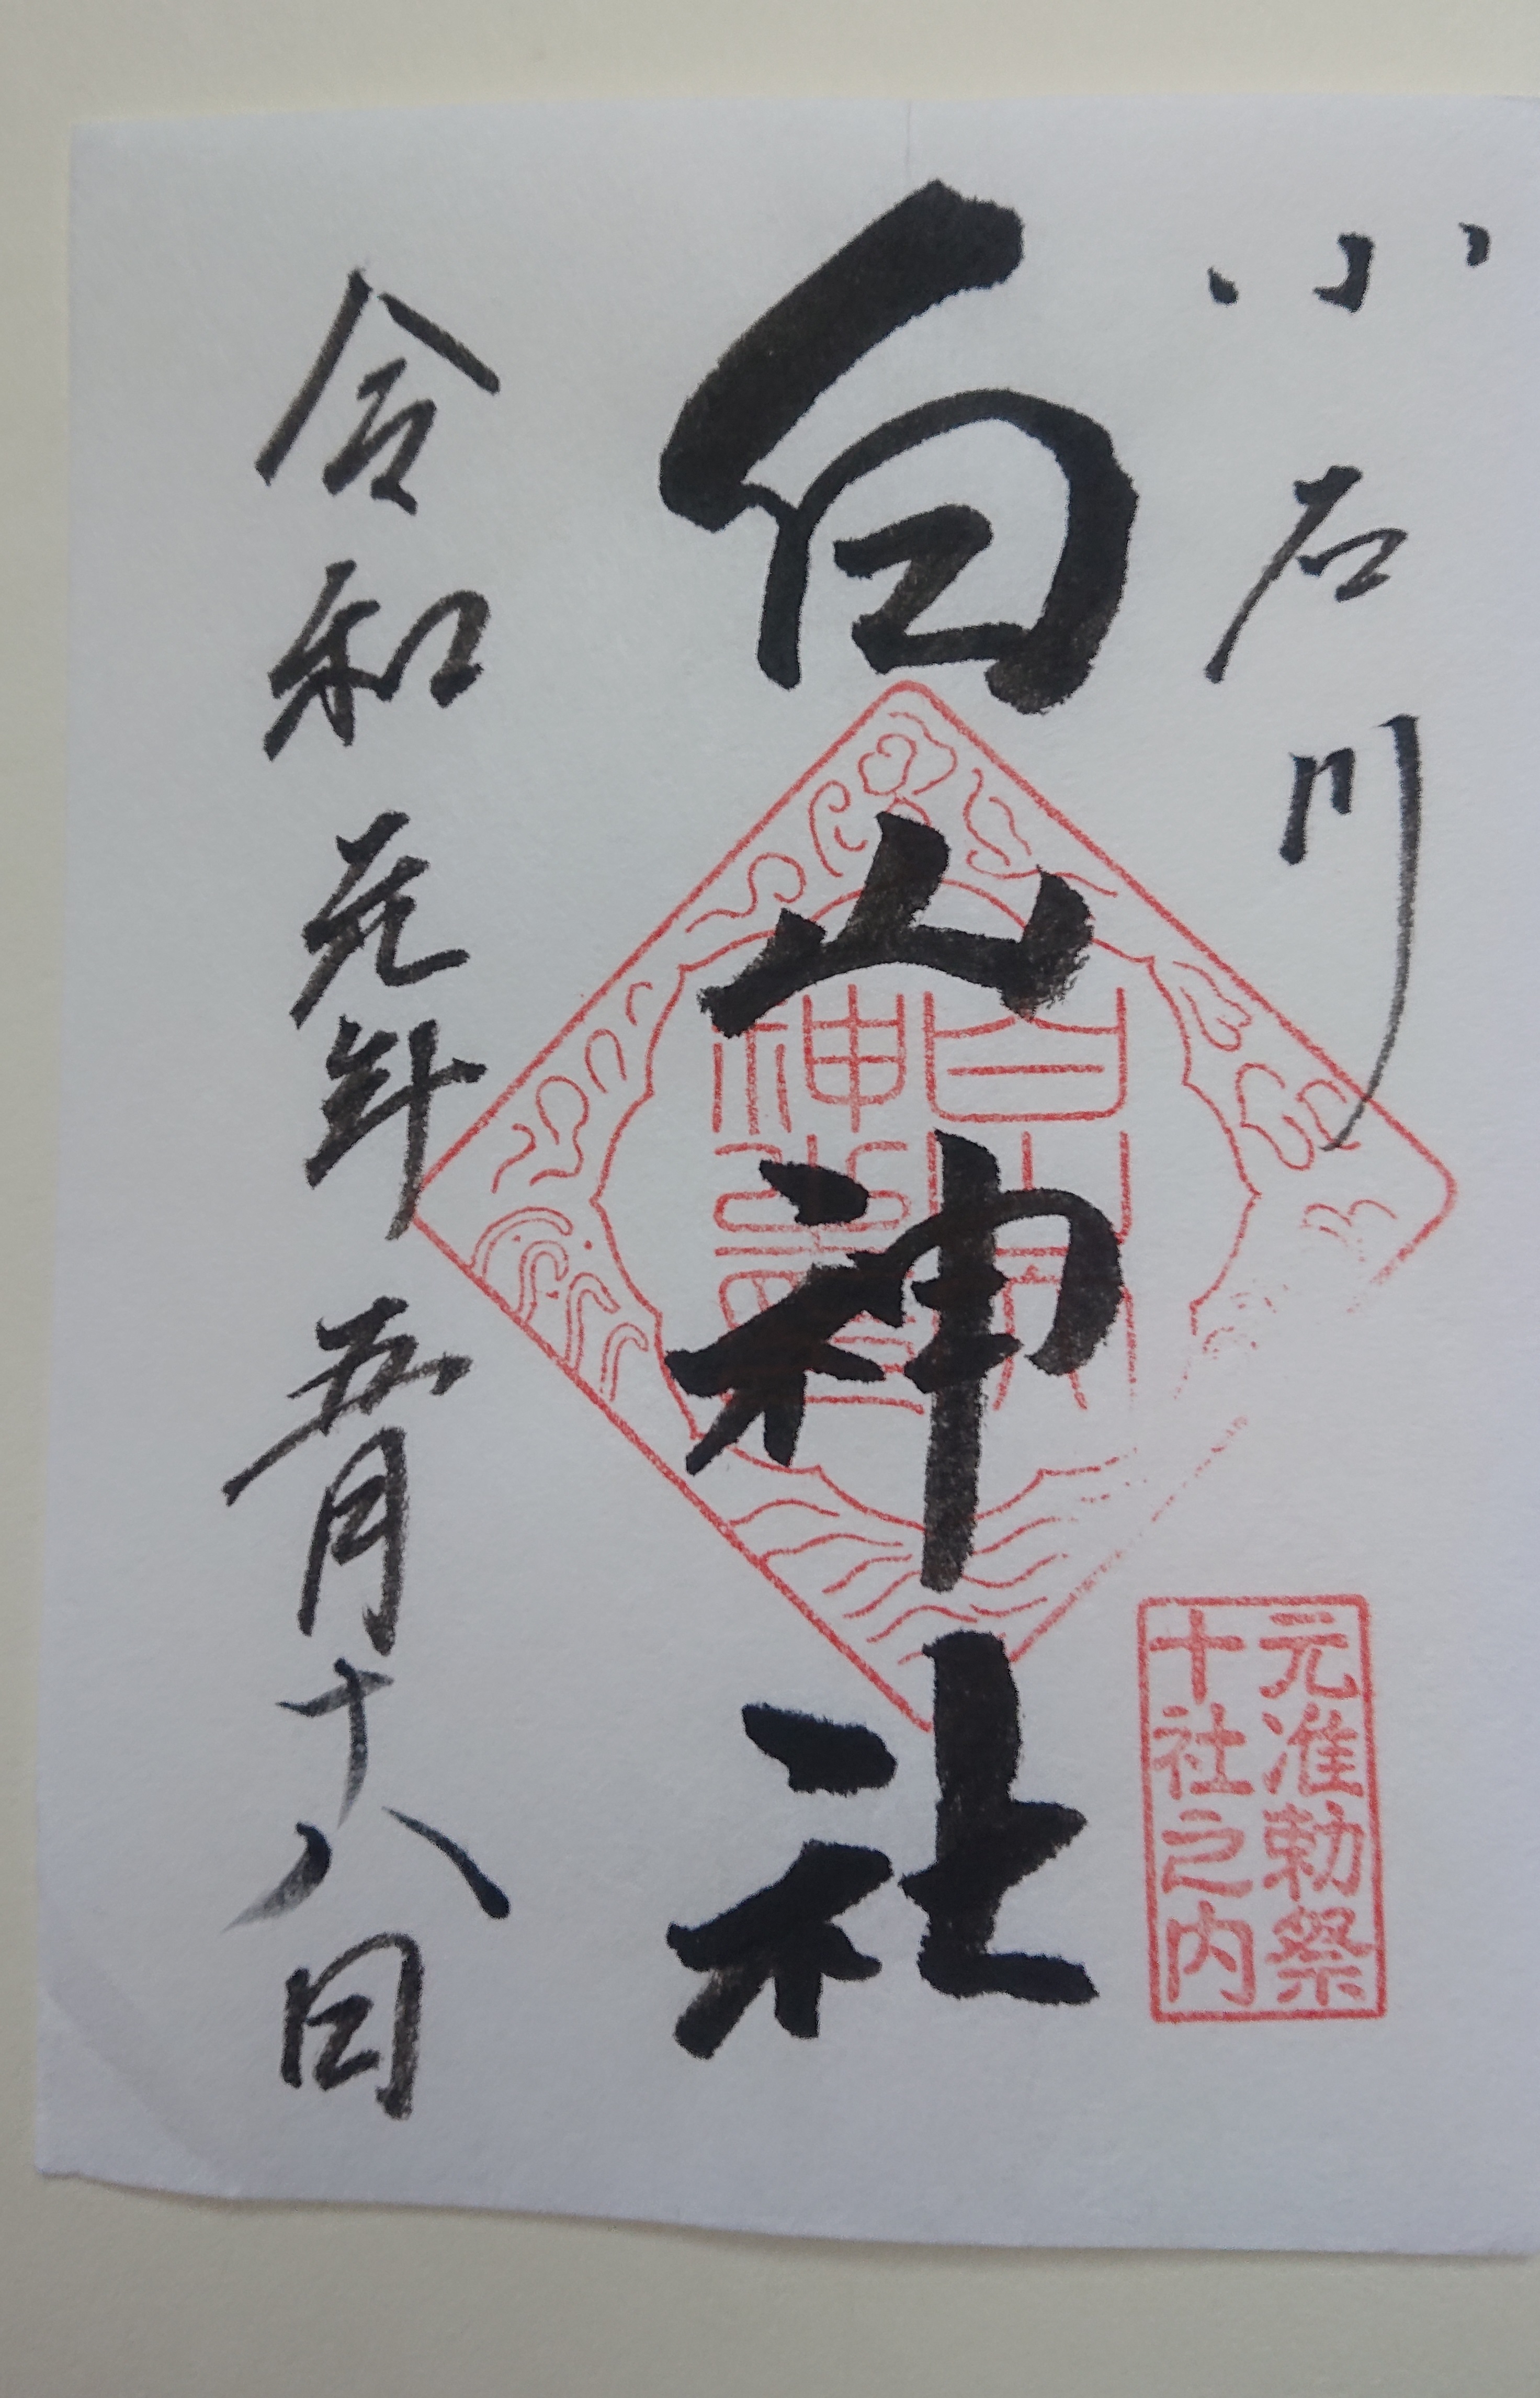 小石川
白山神社
令和元年五月十八日
元准勅祭
十社之内